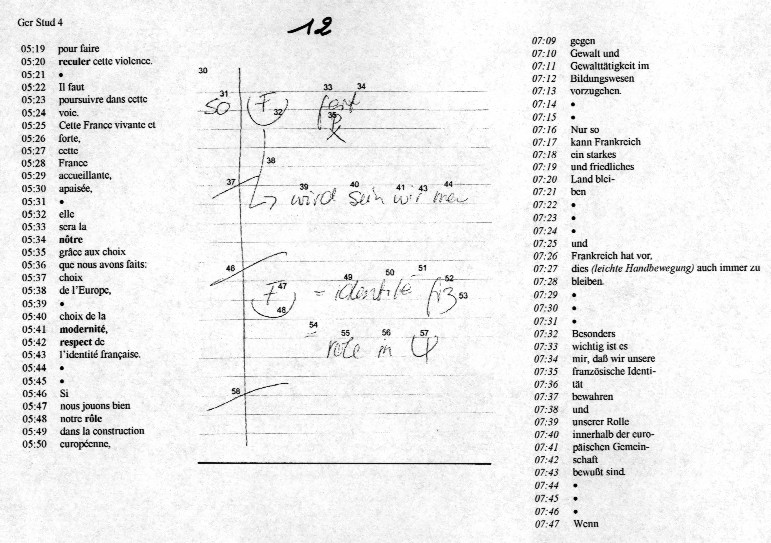 Ger Stud 4
12
05:19 pour faire
05:20 reculer cette violence.
05:21 •
05:22 Il faut
05:23 poursuivre dans cette
05:24 voie.
05:25 Cette France vivante et
05:26 forte,
05:27 cette
05:28 France
05:29 accueillante,
05:30 apaisée,
05:31 •
05:32 elle
05:33 sera la
05:34 nôtre
05:35 grâce aux choix
05:36 que nous avons faits:
05:37 choix
05:38 de l'Europe,
05:39 •
05:40 choix de la
05:41 modernité,
05:42 respect de
05:43 l'identité française.
05:44 •
05:45 •
05:46 Si
05:47 nous jouons bien
05:48 notre rôle
05:49 dans la construction
05:50 européenne,
30
31 33 34
so F
32 35
38
37 39 40 41 43 44
wird sein wir
46 47 49 50 51 52
F = identité
48 53
54 55 56 57
= role in
58
07:09 gegen
07:10 Gewalt und
07:11 Gewalttätigkeit im
07:12 Bildungswesen
07:13 vorzugehen.
07:14 •
07:15 •
07:16 Nur so
07:17 kann Frankreich
07:18 ein starkes
07:19 und friedliches
07:20 Land blei-
07:21 ben
07:22 •
07:23 •
07:24 •
07:25 und
07:26 Frankreich hat vor,
07:27 dies (leichte Handbewegung) auch immer zu
07:28 bleiben.
07:29 •
07:30 •
07:31 •
07:32 Besonders
07:33 wichtig ist es
07:34 mir, daß wir unsere
07:35 französische Identi-
07:36 tät
07:37 bewahren
07:38 und
07:39 unserer Rolle
07:40 innerhalb der euro-
07:41 päischen Gemein-
07:42 schaft
07:43 bewußt sind.
07:44 •
07:45 •
07:46 •
07:47 Wenn